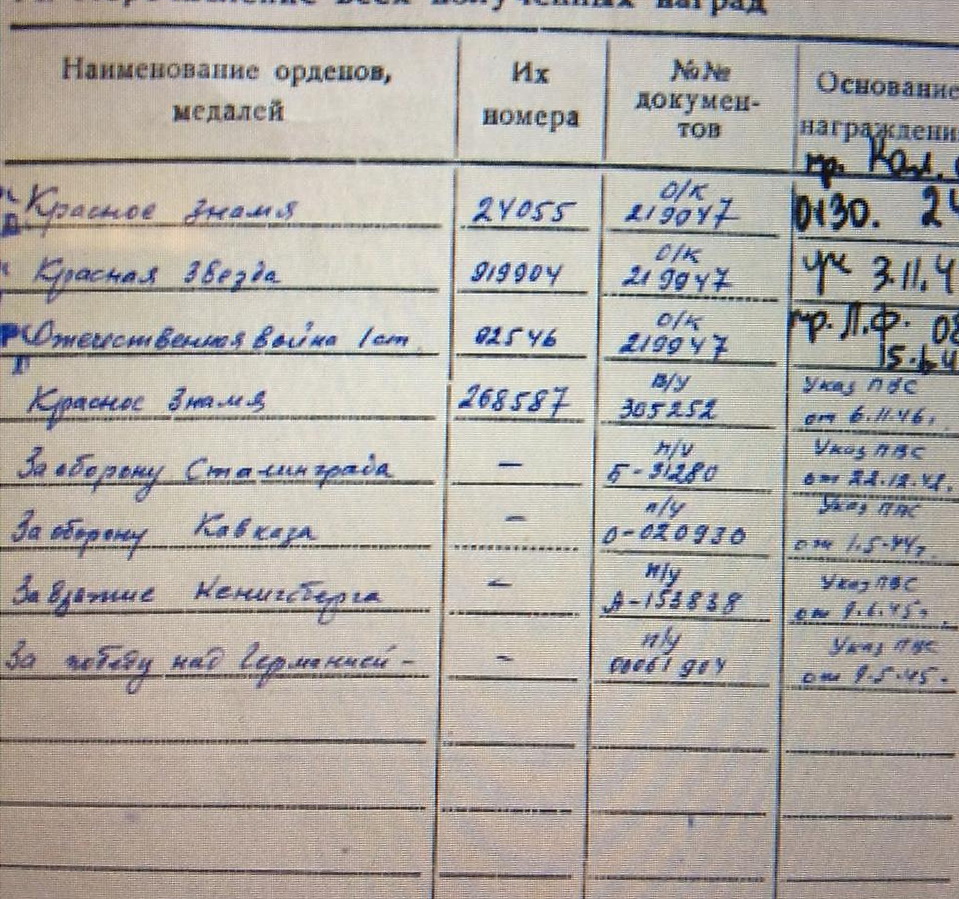 всех полученных наград
Наименование орденов, медалей
Их номера
№№ документов
Основание
награждени
пр. Кал.
Красное Знамя 24055 О/К 219947 0130. 24
Красная Звезда 919904 О/К 219947 ук 3.11.4
Отечественная война 1 ст. 92546 О/К 219947 пр. Л.Ф. 08
15.6.4
Красное Знамя 268587 в/у 305252 Указ ПВС от 6.11.46г.
За оборону Сталинграда — п/у Б-31280 Указ ПВС от 22.12.42.
За оборону Кавказа — п/у О-020930 Указ ПВС от 1.5.44г.
За взятие Кенигсберга — п/у А-153838 Указ ПВС от 9.6.45г.
За победу над Германией — п/у 0061904 Указ ПВС от 9.5.45.